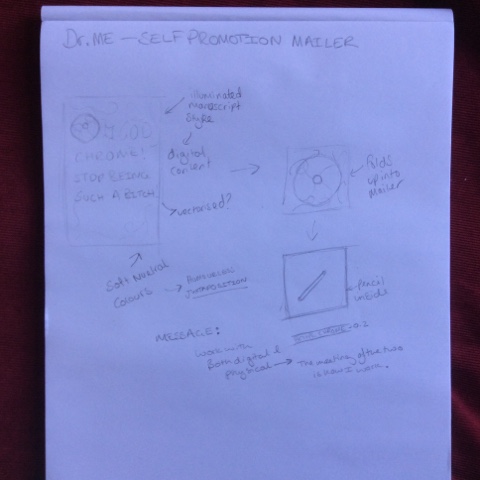 Dr.ME — SELF PROMOTION MAILER
illuminated
manuscript
style
CHROME!
STOP BEING
SUCH A BITCH.
digital
content
vectorised?
folds
up into
mailer
Soft Neutral
Colours
JUXTAPOSITION
pencil
inside
MESSAGE:
work with
Both digital &
physical
The meeting of the two
is how I work.